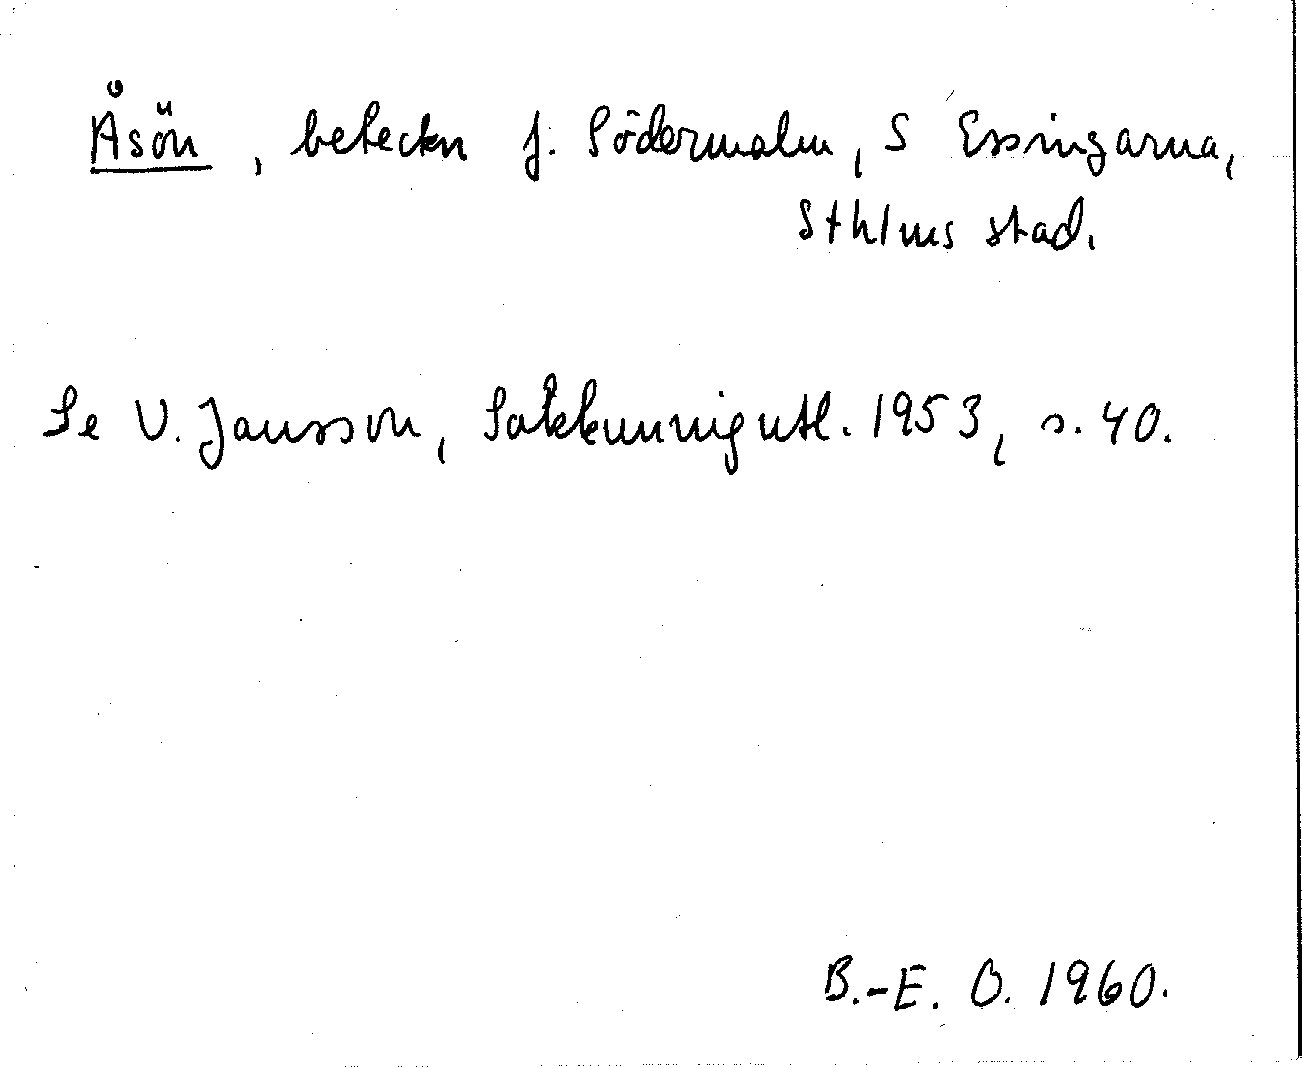 Åsön, beteckn f. Södermalm, S Essingarna,
Sthlms stad.
Se V. Jansson, Sakkunnigutl. 1953, s. 40.
B.-E. O. 1960.